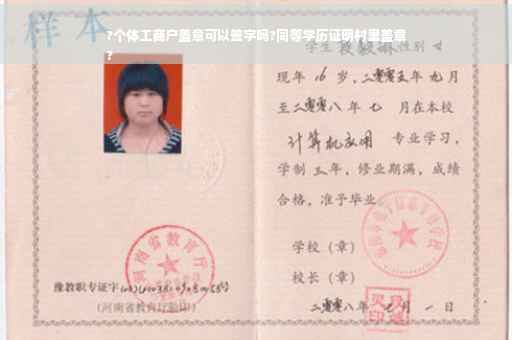 样本
?个体工商户盖章可以签字吗?同等学历证明村里盖章
?
学生 性别 女
现年 16 岁,二零零五年 九月
至二零零八年 七 月在本校
计算机应用 专业学习,
学制 三年,修业期满,成绩
合格,准予毕业
学校(章)
校长(章)
二零零八年 七月 一日
河南省教育厅
豫教职专证字
(河南省教育厅验印)